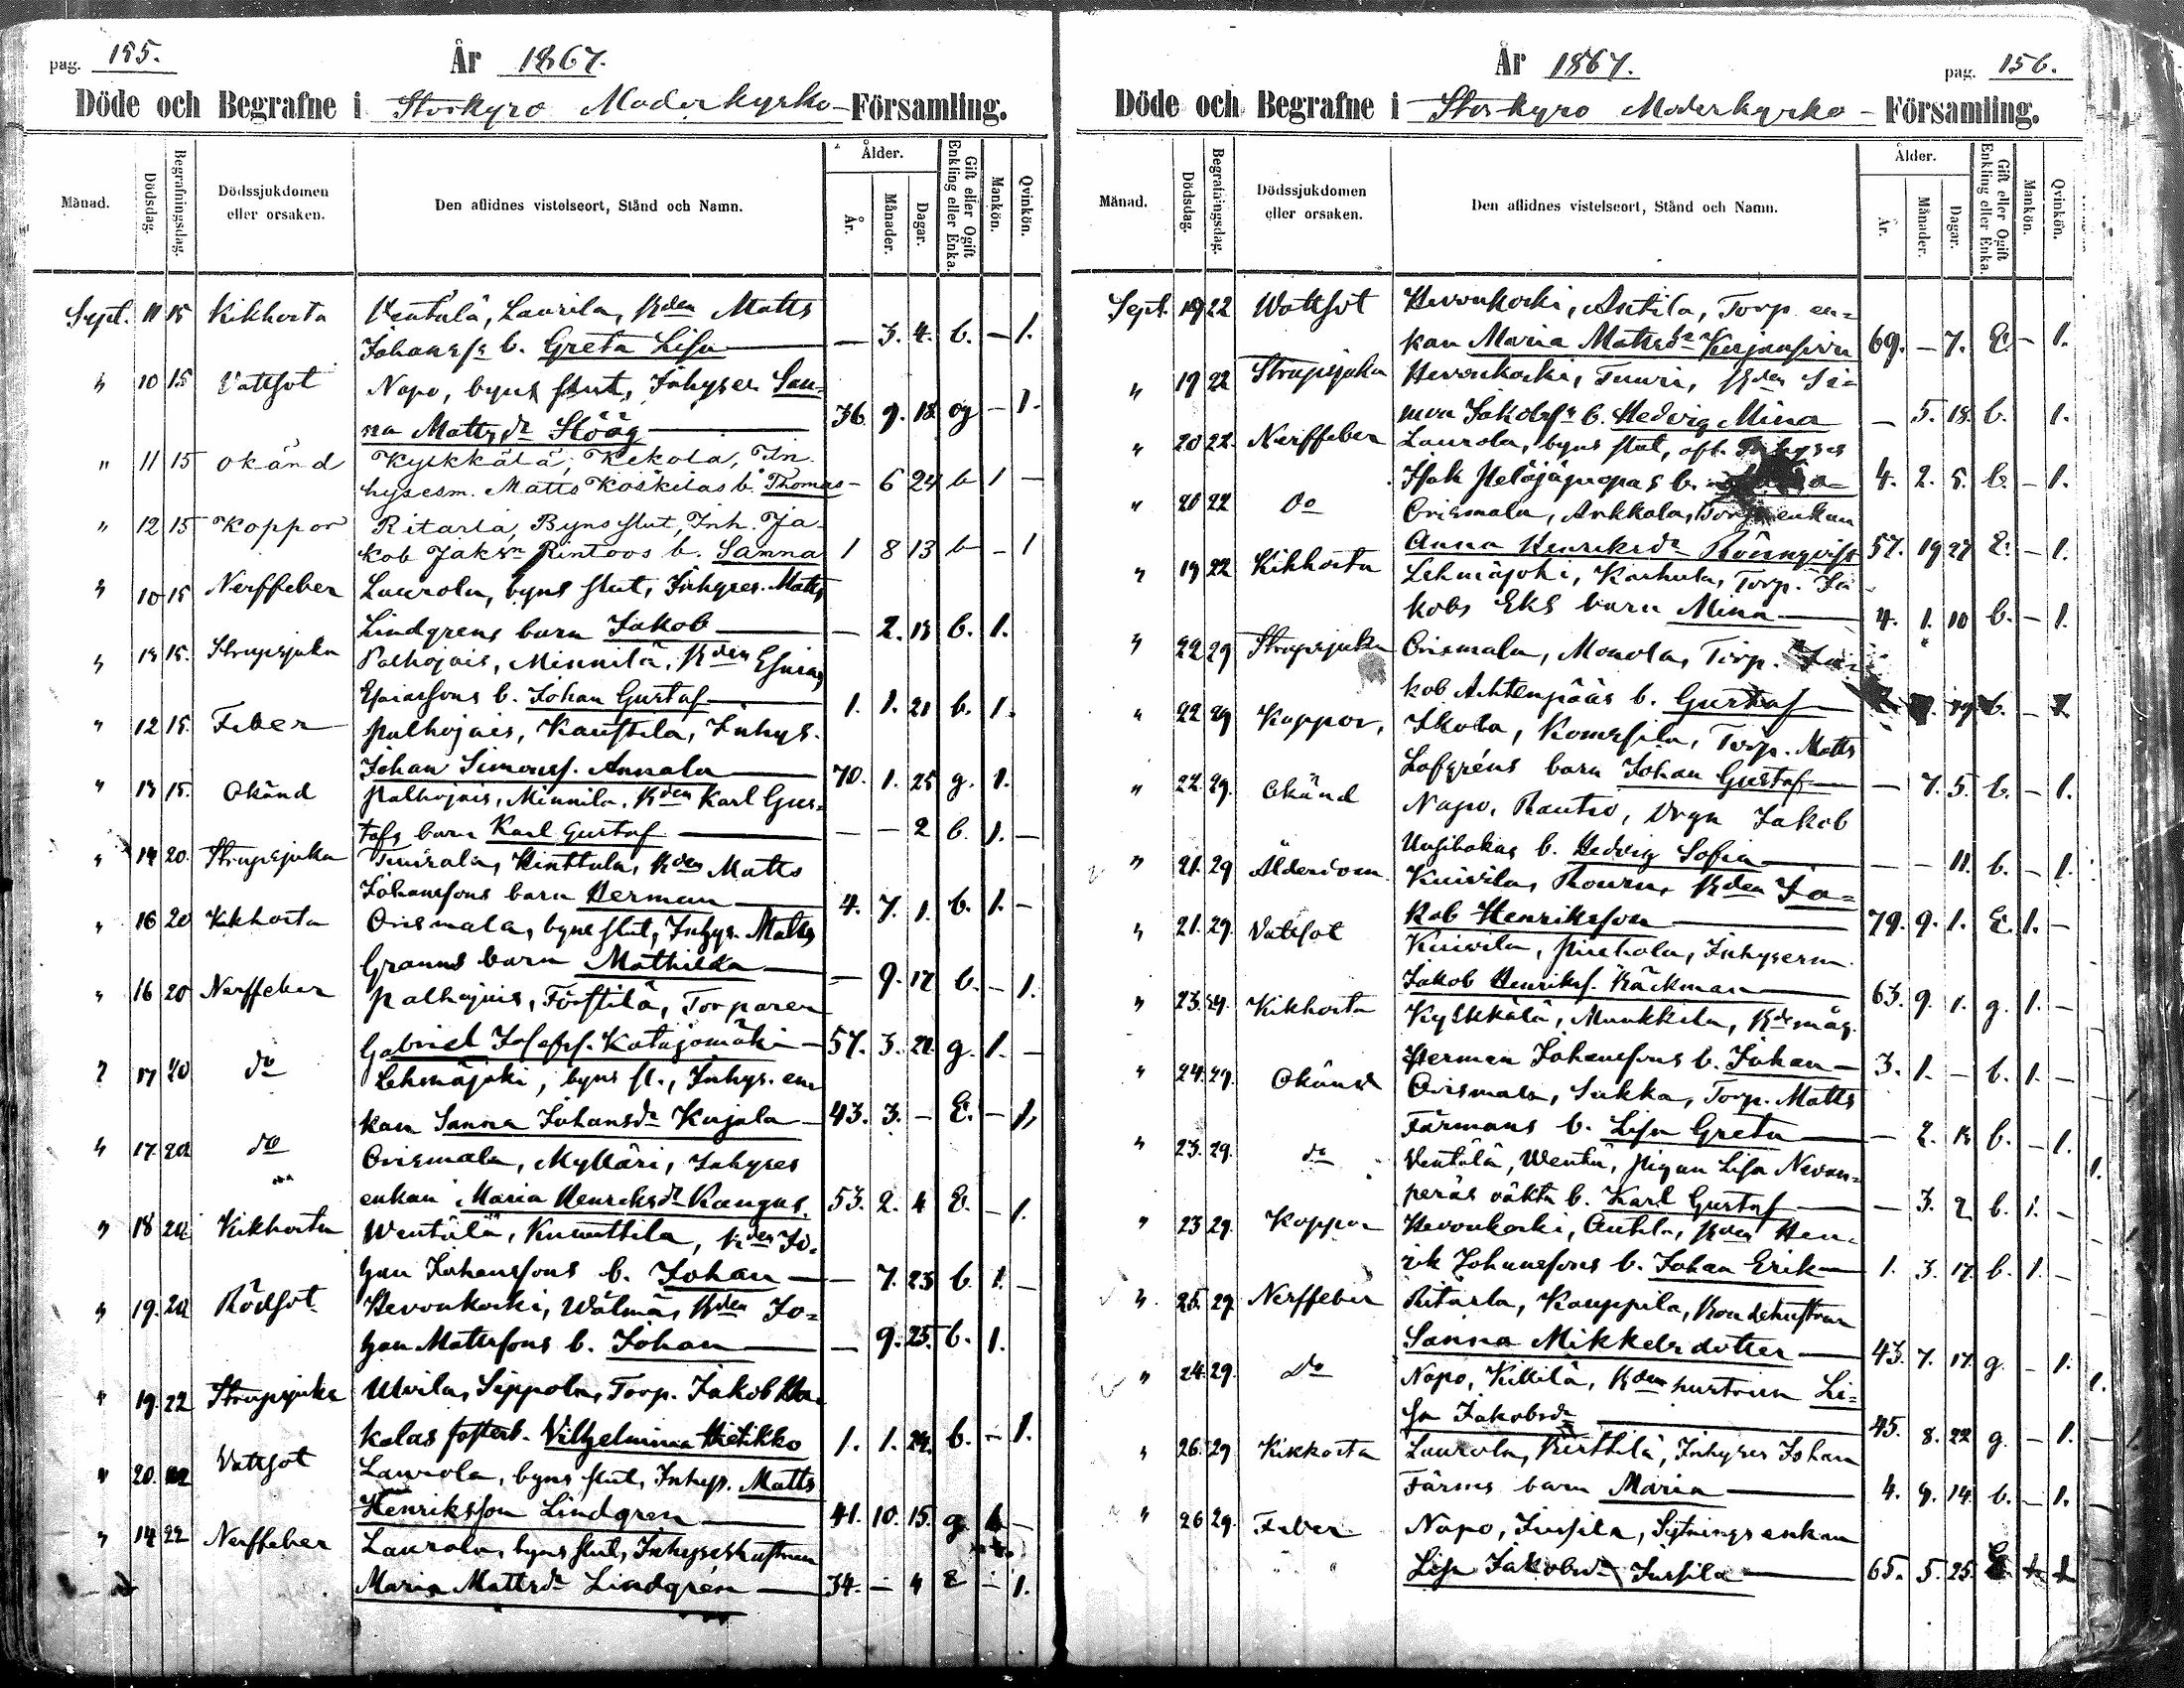 pag. 155.
År 1867.
Döde och Begrafne i Storkyro Moderkyrko- Församling.
Månad. Dödsdag. Begrafningsdag. Dödssjukdomen eller orsaken. Den aflidnes vistelseort, Stånd och Namn. Ålder. År. Månader. Dagar. Gift eller Ogift Enkling eller Enka. Mankön. Qvinkön.
Sept. 11 15 Kikhosta Ventälä, Laurila, Bden Matts
Johanss b. Greta Lisa — 3. 4. b. — 1.
" 10 15 Vattsot Napo, byns slut, Inhyses San-
na Mattsdr Höög 36. 9. 18 og — 1.
" 11 15 okänd Kylkkälä, Kekola, In-
hysesm. Matts Koskelas b. Thomas — 6 24 b 1 —
" 12 15 Koppor Ritaala, Byns slut, Inh. Ja-
kob Jaksn Rintoos b. Sanna 1 8 13 b — 1
" 10 15 Nerffeber Laurola, byns slut, Inhyses. Matts
Lindgrens barn Jakob — 2. 13 b. 1.
" 13 15. Strupsjuka Palhojais, Minnilä, Bden Esaias
Esaiassons b. Johan Gustaf 1. 1. 21 b. 1.
" 12 15. Feber Palhojais, Kaustila, Inhys.
Johan Simonss. Annala 70. 1. 25 g. 1.
" 13 15. Okänd Palhojais, Minnila, Bden Karl Gus-
tafs barn Karl Gustaf — — 2 b. 1. —
" 14 20. Strupsjuka Tuurala, Hinttula, Bden Matts
Johanssons barn Herman 4. 7. 1. b. 1. —
" 16 20 Kikhosta Orismala, byns slut, Inhys. Matts
Granns barn Mathilda — 9. 17 b. — 1.
" 16 20 Nerffeber Palhojais, Förstilä, Torparen
Gabriel Josefss. Katajamäki 57. 3. 21. g. 1. —
" 17 20 do Lehmäjoki, byns sl., Inhys. en-
kan Sanna Johansdr Kujala 43. 3. — E. — 1.
" 17. 20 do Orismala, Mylläri, Inhyses
enkan Maria Henriksdr Kangas. 53. 2. 4 E. — 1.
" 18 20 Kikhosta Wentälä, Knuuttila, Bden Jo-
han Johanssons b. Johan — 7. 23 b. 1. —
" 19. 20 Rödsot Hevonkoski, Wälmä, Bden Jo-
han Mattssons b. Johan — 9. 25. b. 1.
" 19. 22 Strupsjuka Ulvila, Seppola, Torp. Jakob
kalas fosterb. Vilhelmina Hietikko 1. 1. 24. b. — 1.
" 20. 22 Vattsot Laurola, byns slut, Inhys. Matts
Henriksson Lindgren 41. 10. 15. g. 1. —
" 14 22 Nerffeber Laurola, byns slut, Inhyseshustrun
Maria Mattsdr Lindgrén 34. — 4 E — 1.
År 1867.
pag. 156.
Döde och Begrafne i Storkyro Moderkyrko- Församling.
Månad. Dödsdag. Begrafningsdag. Dödssjukdomen eller orsaken. Den aflidnes vistelseort, Stånd och Namn. Ålder. År. Månader. Dagar. Gift eller Ogift Enkling eller Enka. Mankön. Qvinkön.
Sept. 19 22 Wattsot Hevonkoski, Anttila, Torp. en-
kan Maria Mattsdr 69. — 7. E. — 1.
" 19 22 Strupsjuka Hevonkoski, Tuuri, Bden Si-
mon Jakobss b. Hedvig Mina — 5. 18. b. 1.
" 20 22. Nerffeber Laurola, byns slut, Inhyses
Isak b. 4. 2. 5. b. — 1.
" 20 22 Do Orismala, Arkkola, enkan
Anna Henriksdr Rönnqvist 57. 10 27 E. — 1.
" 19 22 Kikhosta Lehmäjoki, Karhula, Torp. Ja-
kobs Eks barn Mina 4. 1. 10 b. — 1.
" 22 29 Strupsjuka Orismala, Monola, Torp. Ja-
kob Ahtenpääs b. Gustaf b. —
" 22 29 Koppor, Ikola, Komsila, Torp. Matts
Lofgréns barn Johan Gustaf — 7. 5. b. — 1.
" 22. 29. Okänd Napo, Rautio, Drgn Jakob
b. Hedvig Sofia — — 11. b. — 1.
" 21. 29 Ålderdom. Kuivila, Rouru, Bden Ja-
kob Henriksson 79. 9. 1. E. 1. —
" 21. 29. Vattsot Kuivila, Piuhola, Inhysesm
Jakob Henrikss. Bäckman 63. 9. 1. g. 1. —
" 23. 29. Kikhosta Kylkkälä, Munkkila, Bdemåg.
Herman Johanssons b. Johan 3. 1. — b. 1. —
" 24. 29. Okänd Orismala, Sukka, Torp. Matts
Färmans b. Lisa Greta — 2. 13 b. — 1.
" 23. 29. do Ventälä, Wentä, Pigan Lisa Nevan-
peräs oäkta b. Karl Gustaf — 3. 2 b. 1. —
" 23 29. Koppor Hevonkoski, Antila, Bden Hen-
rik Johanssons b. Johan Erik 1. 3. 17. b. 1. —
" 25. 29 Nerffeber Ritaala, Kauppila, Bondehustrun
Sanna Mikkelsdotter 43. 7. 17. g. — 1.
" 24. 29. Do Napo, Killilä, Bdenhustrun Li-
sa Jakobsdr 45. 8. 22 g. — 1.
" 26. 29 Kikhosta Laurola, Perttilä, Inhyses Johan
Färms barn Maria 4. 9. 14. b. — 1.
" 26 29. Feber Napo, Jussila, Sytningsenkan
Lisa Jakobsdr Jussila 65. 5. 25. E. 1